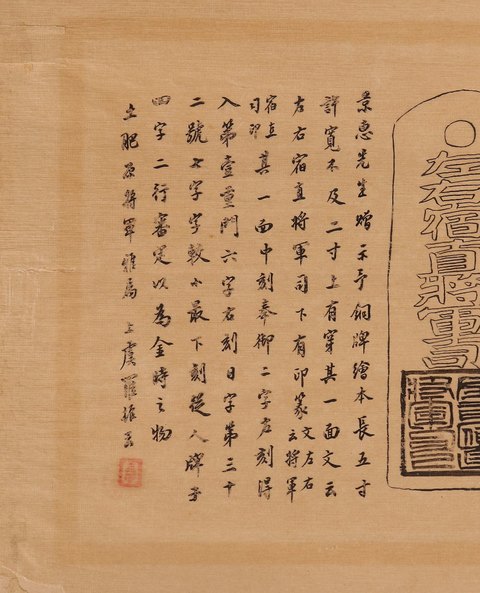 左右宿直將軍司
景惠先生贈示予銅牌繪本長五寸
許寬不及二寸上有穿其一面文云
左右宿直將軍司下有印篆文左右云將軍
宿直司印其一面中刻奉御二字左刻得
入第壹重門六字右刻日字第三十
二號七字字較小最下刻從人牌子
四字二行審定以為金時之物
土肥原將軍雅屬 上虞羅振玉